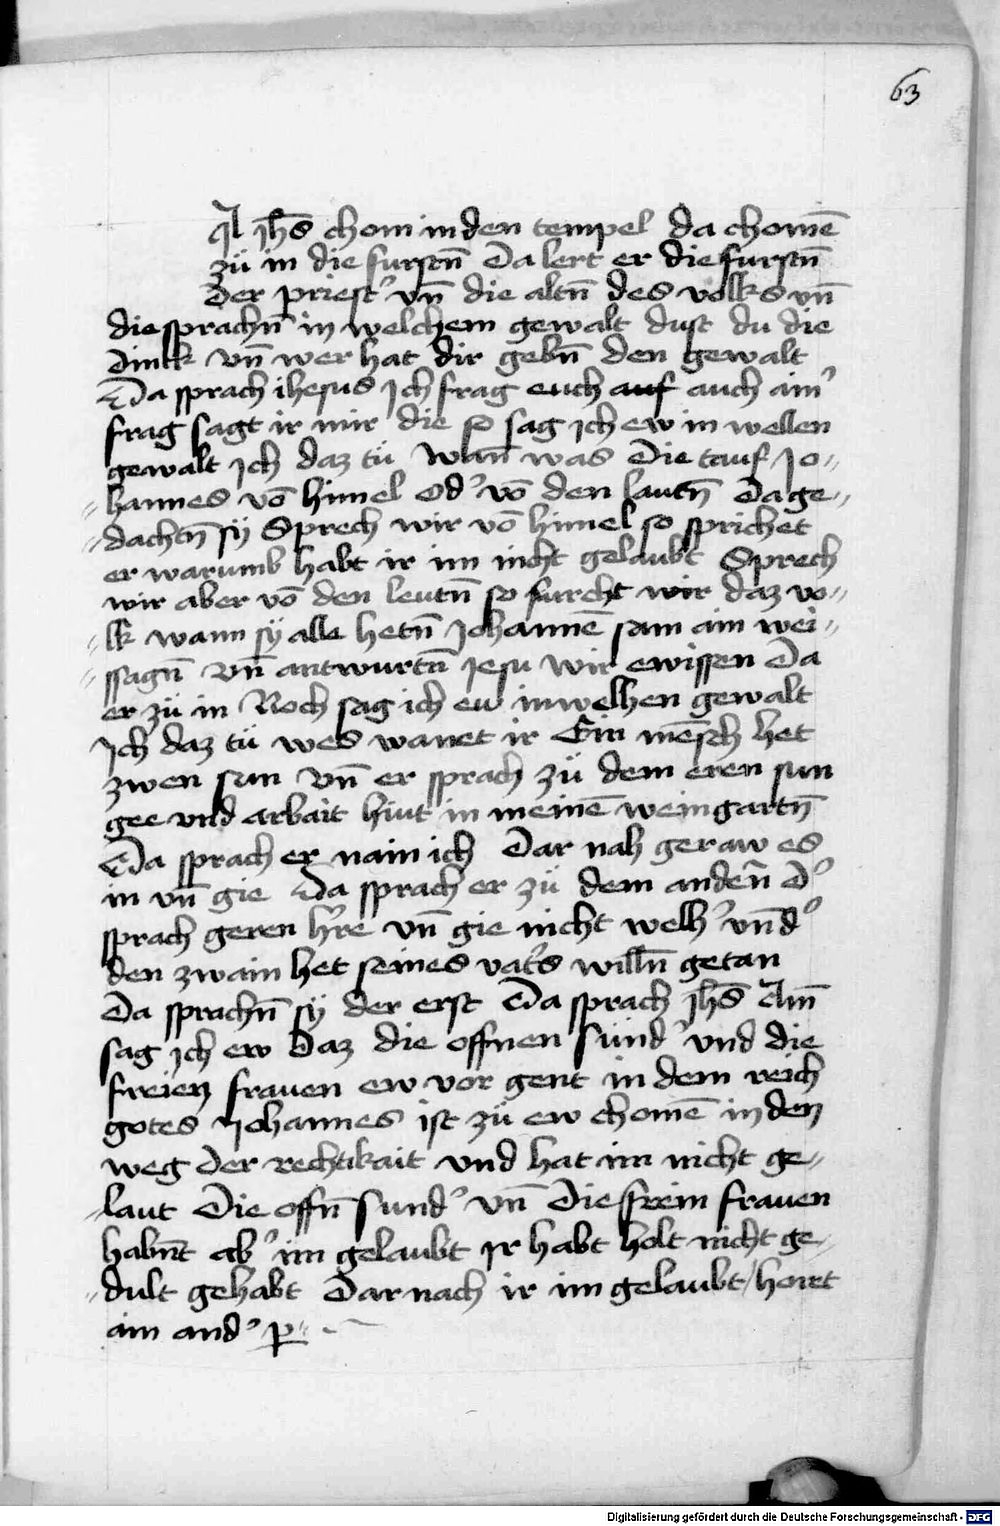 63
A Jhs̄ chom in den tempel da chomē
zü in die furstn̄ Da lert er die furstn̄
Der priest' vn̄ die altn̄ des volks vn̄
die sprachn̄ in welchem gewalt dust du die
dinck vn̄ wer hat dir gebn̄ den gewalt
Da sprach ihesus Ich frag euch auf auch aim'
frag sagt ir mir die so sag ich ew in wellen
gewalt Ich daz tü wan̄ was Die tauf Jo-
hannes vō himel Od' vō den lautn̄ Da ge-
dachtn̄ sÿ Sprech wir vō himel so sprichet
er warumb habt ir im nicht gelaubt Sprech
wir aber vō den leutn̄ so furcht wir daz vo-
lk wann sÿ alle hetn̄ Johannē sam ain wei-
ssagn̄ vn̄ antwurtn̄ Jesu Wir ewissen Da
er zü in Noch sag ich ew in welhen gewalt
Ich daz tü wes wanet ir Ein mēsch het
zwen sun vn̄ er sprach zü dem eren sun
gee vnd arbait hiut in meinē weingartn̄
Da sprach er nain ich Dar nah geraw es
in vn̄ gie Da sprach er zü dem anden̄ D'
sprach geren hr̄e vn̄ gie nicht welh' vn̄d'
den zwain het seines vat's willn̄ getan
Da sprachn̄ sÿ der erst Da sprach Jhs̄ Am̄
sag ich ew Daz die offnen sund' vnd die
freien frauen ew vor gent in dem reich
gotes Johannes ist zü ew chomē in den
weg der rechtikait vnd hat im nicht ge-
laut Die offn̄ sund' vn̄ Die frein frauen
habn̄t ab' im gelaubt Ir habt holt nicht ge-
dult gehabt Dar nach ir im gelaubt / horet
ain and' p
Digitalisierung gefördert durch die Deutsche Forschungsgemeinschaft - DFG